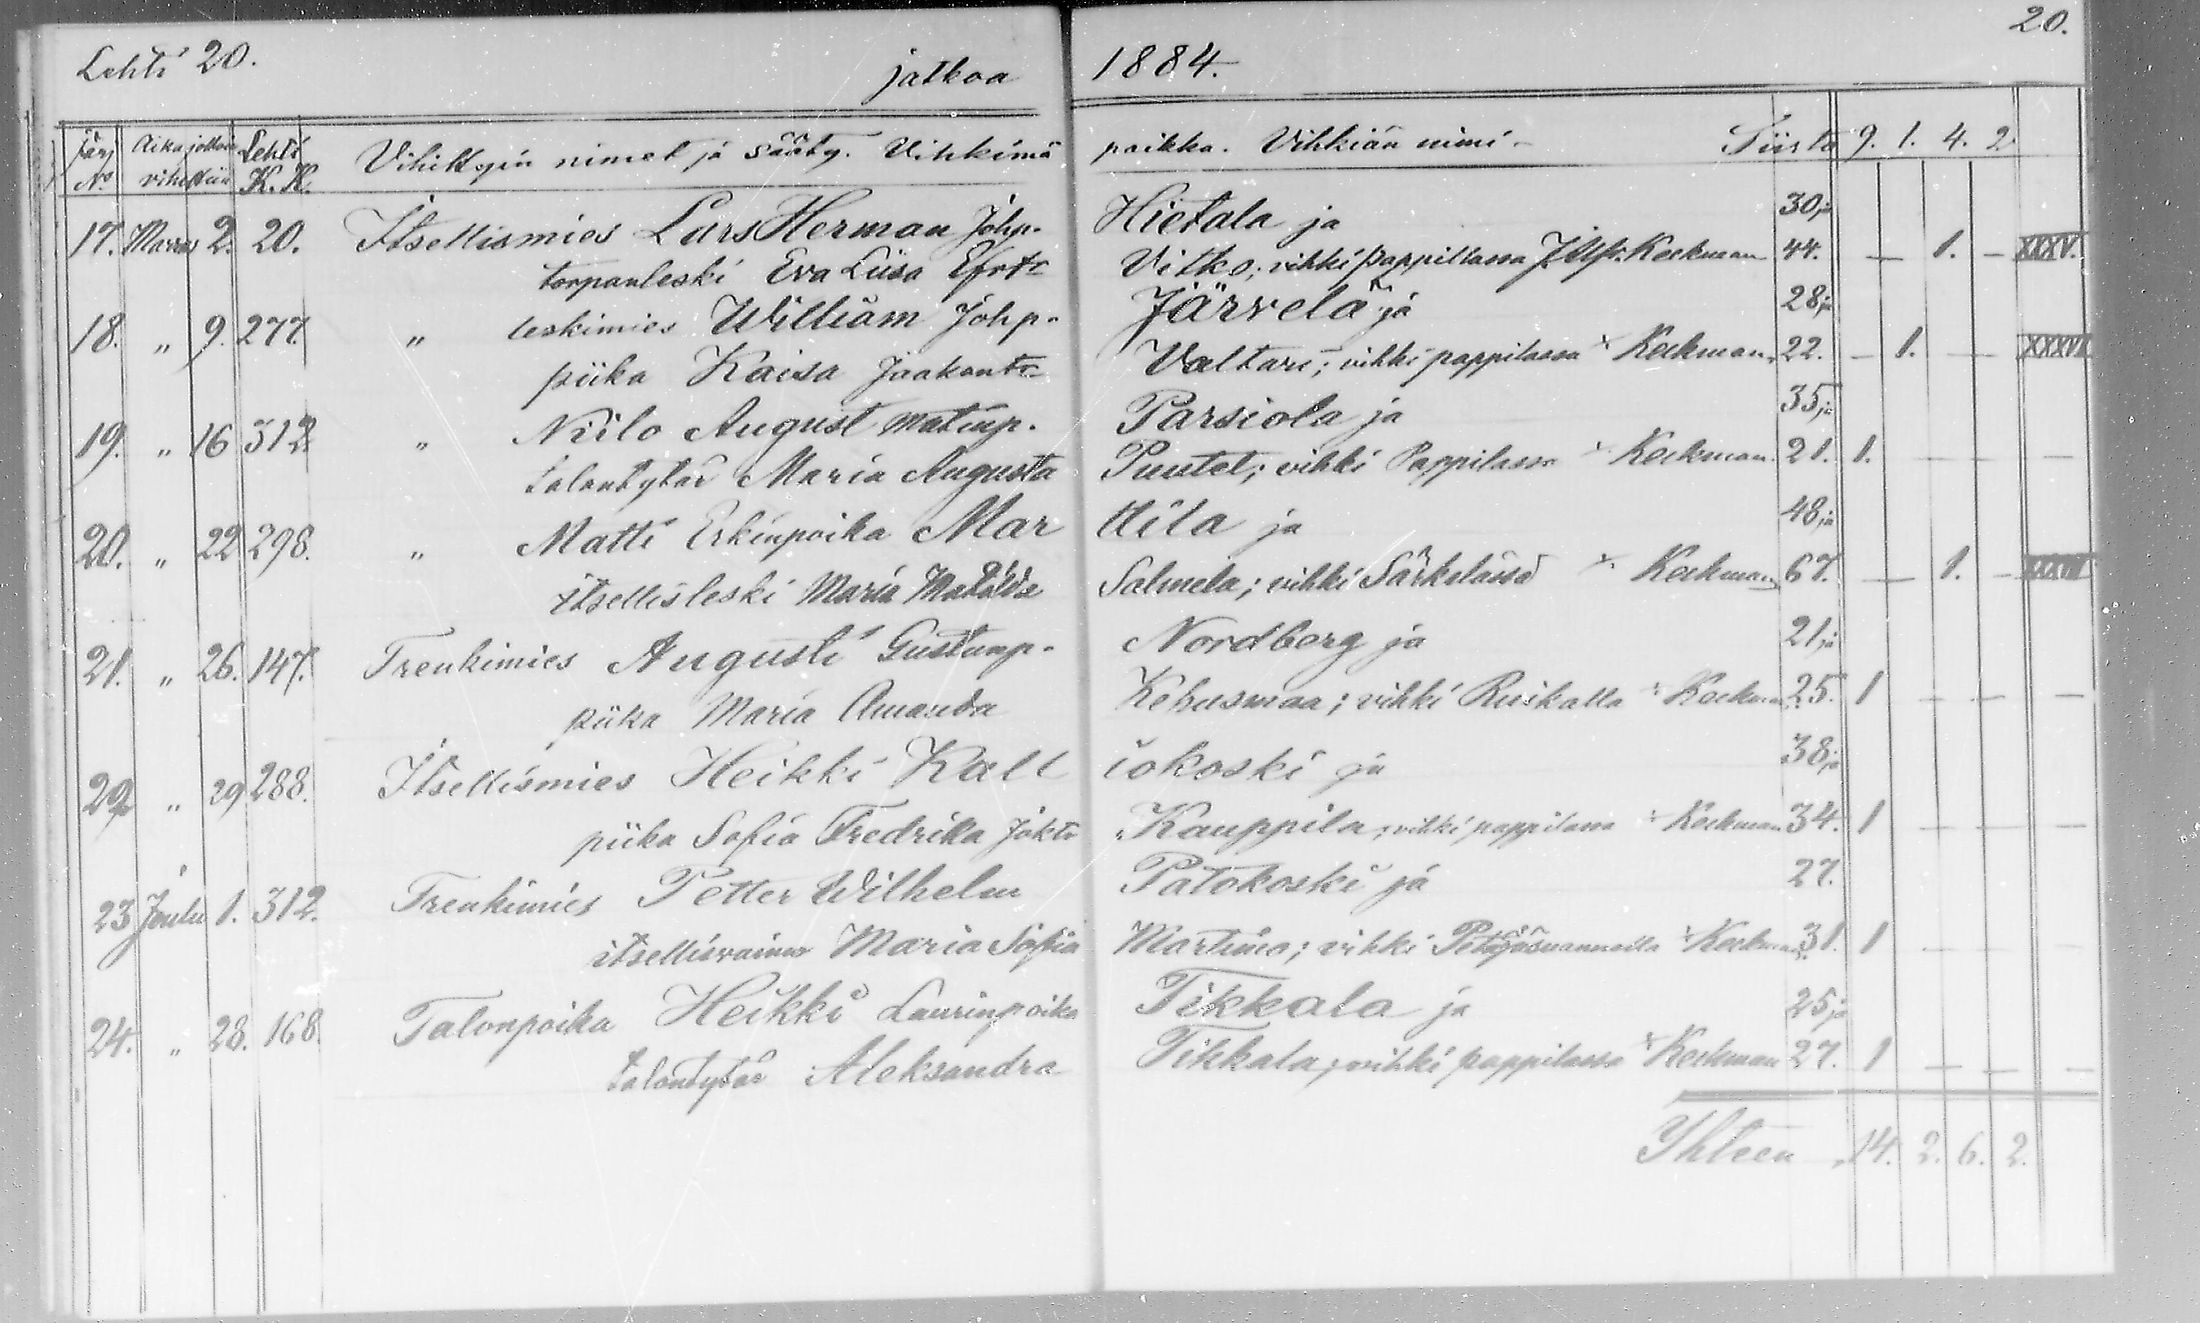 Lehti 20. jatkoa 1884. 20.
Järj No Aika jolloin vihittiin Lehti K. K. Vihittyin nimet ja sääty. Vihkimä paikka. Vihkiän nimi Siirto 9. 1. 4. 2
17. Marras 2. 20. Itsellismies Lars Herman Johp. Hietala ja 30, ja
torpanleski Eva Liisa Efrtr Vitko; vihki pappillassa J. Keckman 44. — 1. — XXXV.
18. " 9. 277. " leskimies William Johp. Järvelä ja 28, ja
piika Kaisa Jaakontr Valtari; vihki pappilassa Keckman 22. — 1. — XXXVI
19. " 16 312 " Niilo August Matinp. Parsiola ja 35, ja
talontytär Maria Augusta Puutet; vihki Pappilassa Keckman 21. 1. — — —
20. " 22 298. " Matti Erkinpoika Mar ttila ja 48, ja
itsellisleski Maria Matilda Salmela; vihki Särkelässä Keckman 67. — 1. —
21. " 26. 147. Trenkimies Augusti Gustunp. Nordberg ja 21, ja
piika Maria Amanda Kehusmaa; vihki Ruikalla Keckman 25. 1 — — —
22 " 29 288. Itsellismies Heikki Kall iokoski ja 38, ja
piika Sofia Fredrika Jaktr Kauppila; vihki pappilassa Keckman 34. 1 — — —
23 Joulu 1. 312. Trenkimies Petter Wilhelm Patokoski ja 27.
itsellisvaimo Maria Sofia Martimo; vihki Petäjäsvannolla Keckman 31. 1 — — —
24. " 28. 168. Talonpoika Heikki Laurinpoika Tikkala ja 25, ja
talontytär Aleksandra Tikkala; vihki pappilassa Keckman 27. 1 — — —
Yhteen 14. 2. 6. 2.